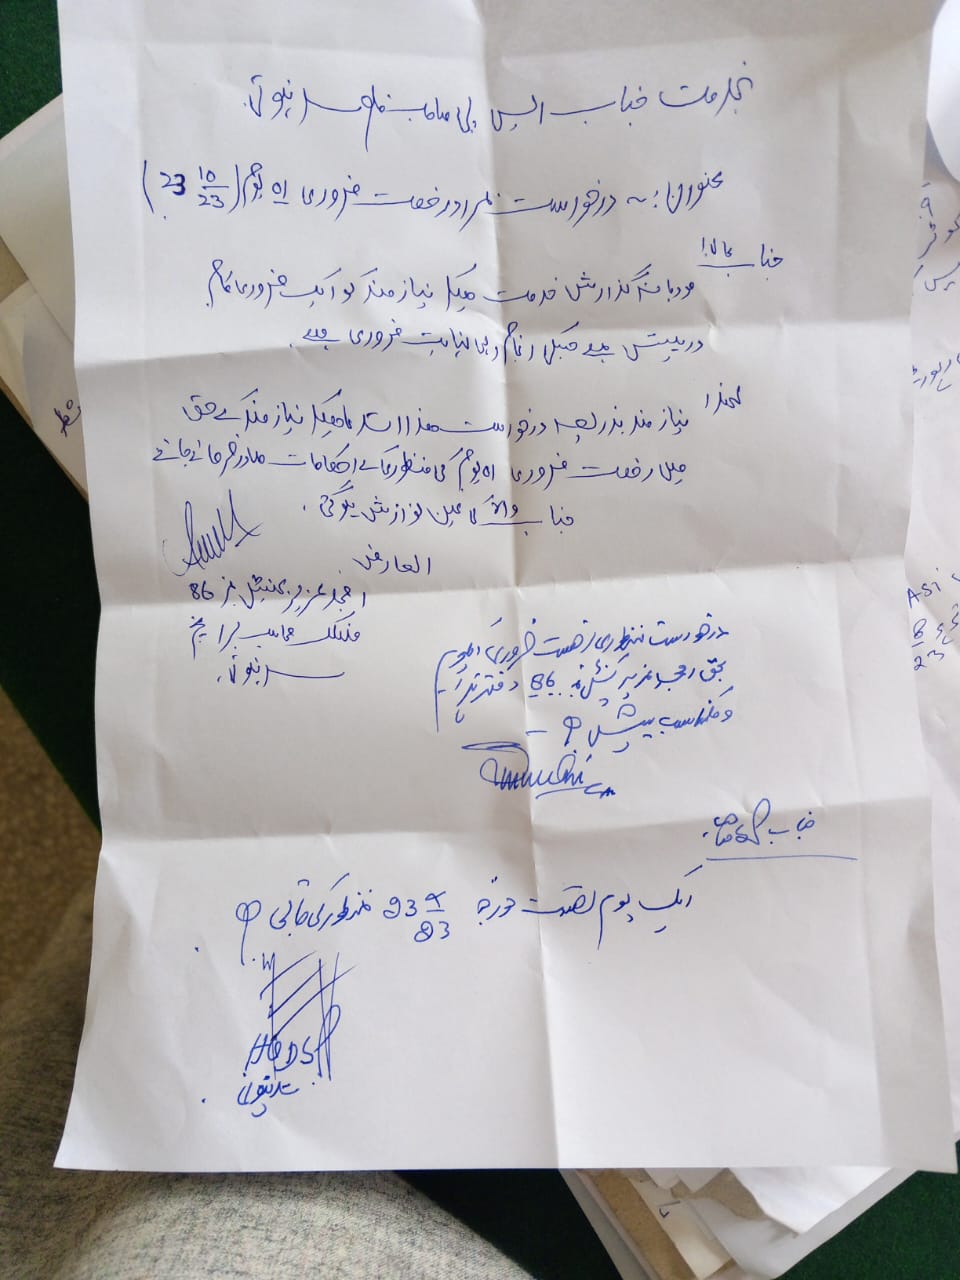 بخدمت جناب ایس پی صاحب ضلع سدہنوتی
عنوان:۔ درخواست بمراد رخصت ضروری 01 یوم (23 10/23)
جناب عالی!
مودبانہ گذارش خدمت ہیکہ نیازمند کو ایک ضروری کام
درپیش ہے جسکی انجام دہی نہایت ضروری ہے۔
لہذا نیازمند بذریعہ درخواست ھذا استدعا ہیکہ نیازمند کے حق
میں رخصت ضروری 01 یوم کی منظوری کے احکامات صادر فرمائے جانے
جناب والا کی عین نوازش ہوگی۔
العارض
امجد عزیز کنسٹیبل نمبر 86
سدہنوتی
درخواست منظوری رخصت ضروری 01 یوم
بحق امجد عزیز کنسٹیبل نمبر 86 دفتر ہذا
مناسب پیش ہے۔
جناب
ایک یوم رخصت مورخہ 23 منظور کی جاتی ہے
HQ DSP
سدہنوتی
ASI